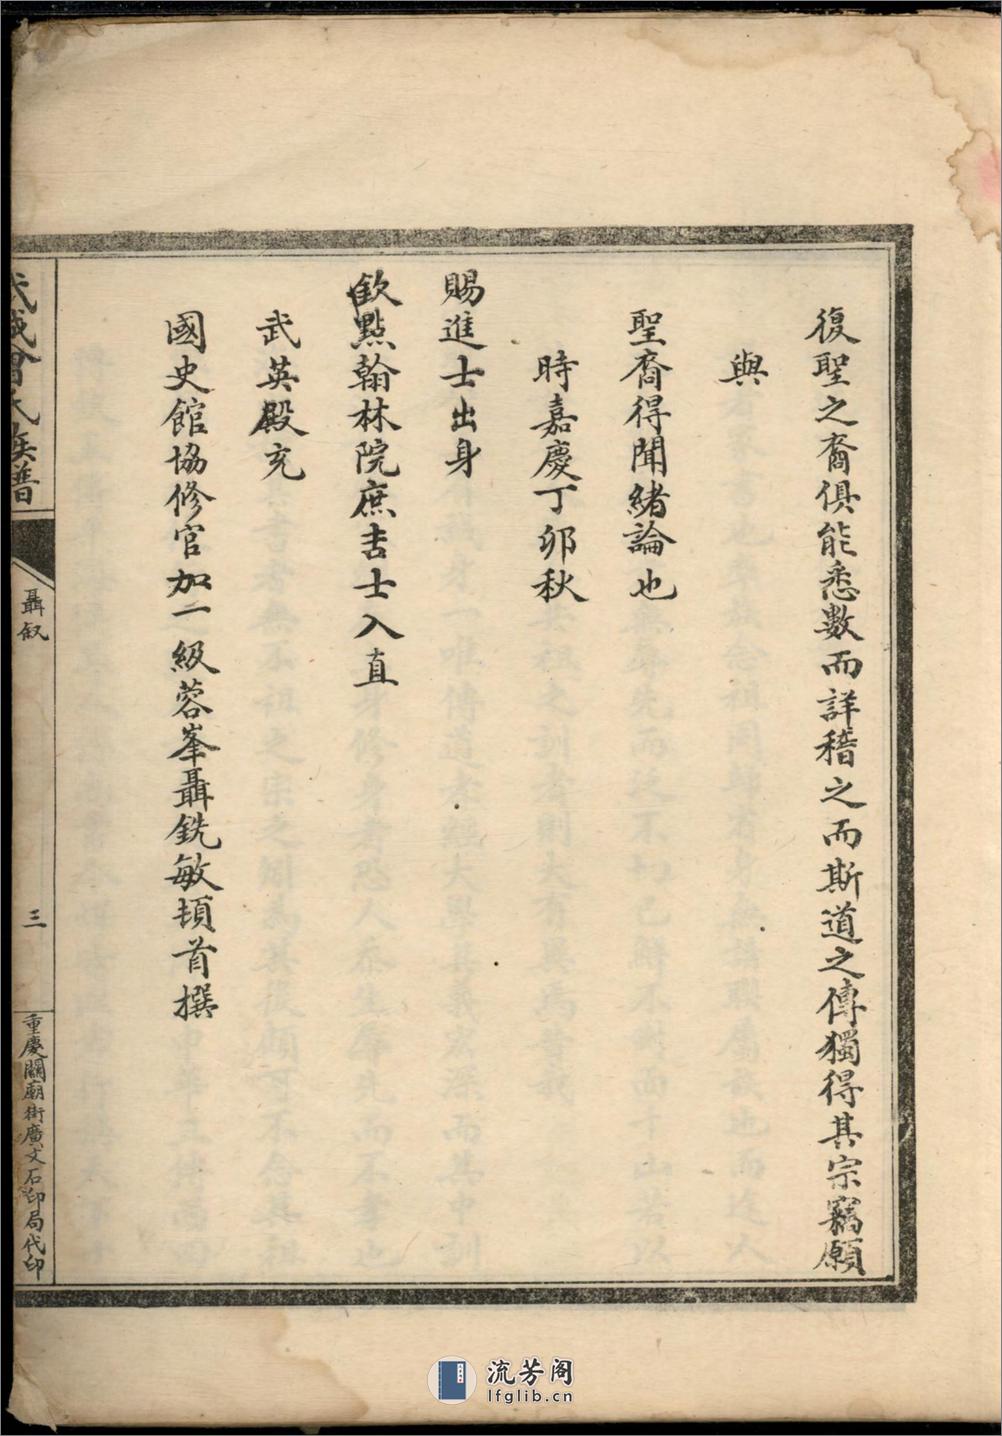 復聖之裔俱能悉數而詳稽之而斯道之傳獨得其宗竊願
與
聖裔得聞緒論也
時嘉慶丁卯秋
賜進士出身
欽點翰林院庶吉士入直
武英殿充
國史館協修官加一級蓉峯聶銑敏頓首撰
武城曾氏族譜
聶叙
三
重慶關廟街廣文石印局代印
流芳阁
lfglib.cn